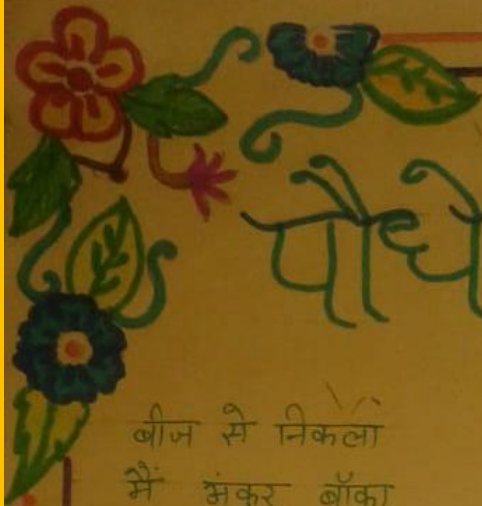 पौधे
बीज से निकला
मैं अंकुर बाँका